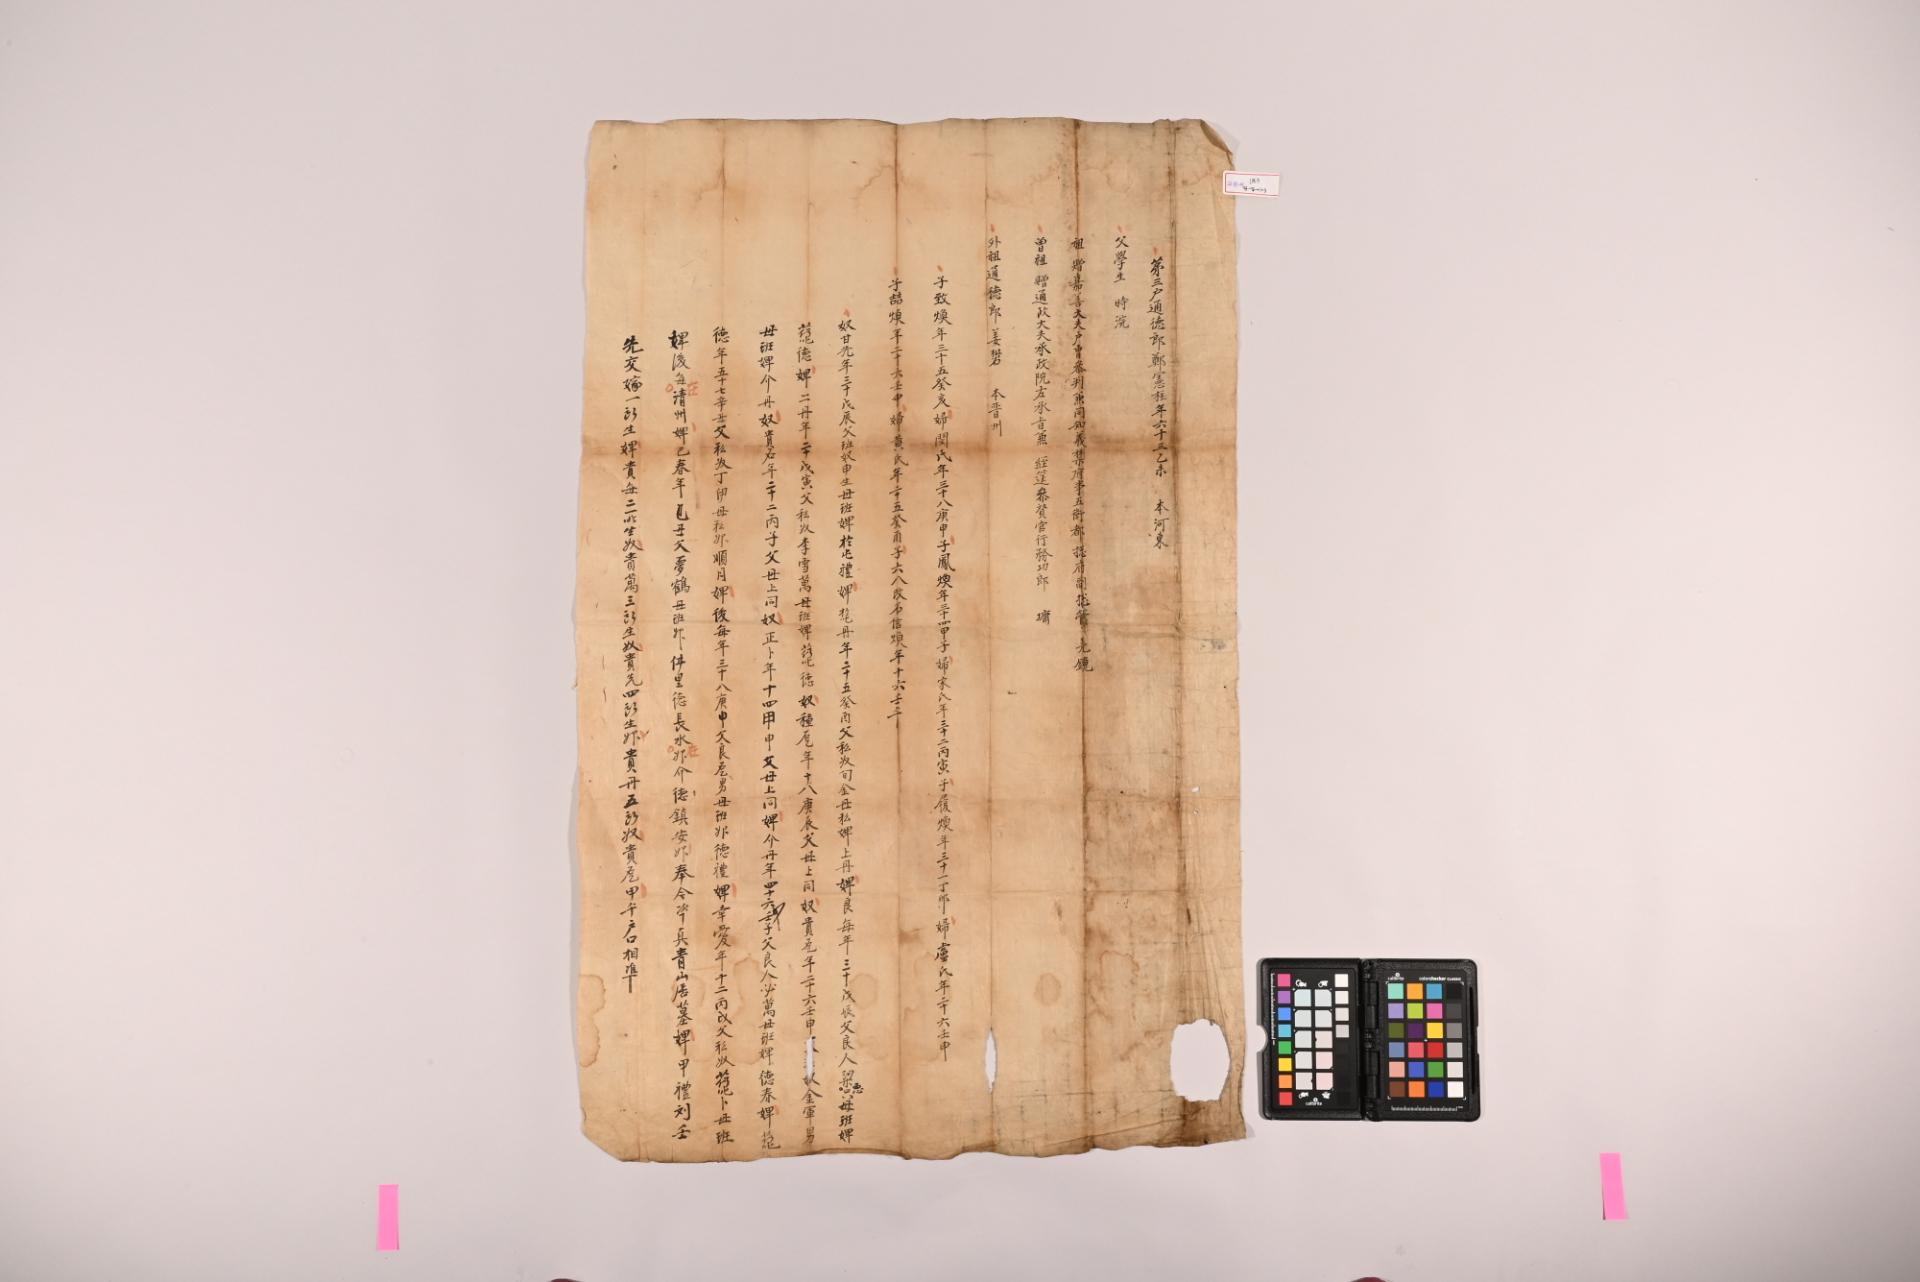 第三戶通德郎鄭憲柱年六十三乙未 本河東
父學生 時流
祖 贈嘉善大夫戶曹叅判兼同知義禁府事五衛都 摠府副摠管 光鏡
曾祖 贈通政大夫承政院左承旨兼 經筵叅贊官行務功郎 墉
外祖通德郎姜 本晋州
子致煥年三十五癸亥婦閔氏年三十八庚申子鳳煥年三十四甲子婦宋氏年三十二丙寅子履煥年三十一丁卯婦盧氏年二十六壬申
子喆煥年二十六壬申婦黃氏年二十五癸酉子六八改名信煥年十六壬午
奴甘先年三十戊辰父班奴申生母班婢於屯禮婢 丹年二十五癸酉父私奴可金母私婢上丹婢良每年三十戊辰父良人梁 德母班婢
德婢二丹年二十戊寅父私奴李雪萬母班婢 德奴種 年十八庚辰父母上同奴貴 年二十六壬申 奴金軍男
母班婢介丹奴貴石年二十二丙子父母上同奴正卜年十四甲申父母上同婢介丹年四十六壬子父良人必萬母班婢德春婢
德年五十七辛丑父私奴丁卯母私婢順月婢後每年三十八庚申父良 男母班婢德禮婢幸愛年十二丙戌父私奴 卜母班
婢後每 在淸州婢己春年 母父夢鶴母班婢件里德長水 在婢介德鎭安婢奉今 眞靑山居墓婢甲禮 壬
先交嫁一所生婢貴每二所生奴貴萬三所生奴貴先四所生婢貴丹五所奴貴 甲午戶口相準